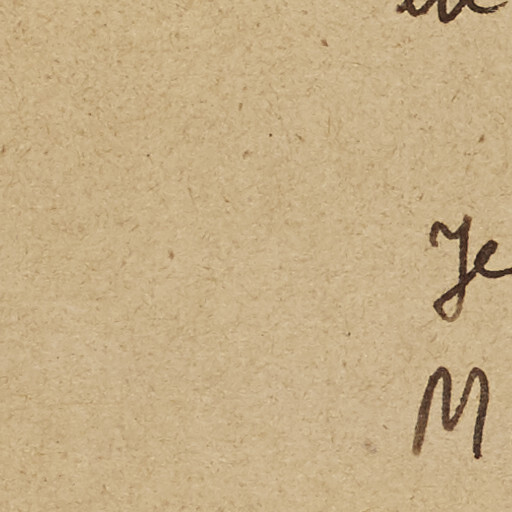 Je
M